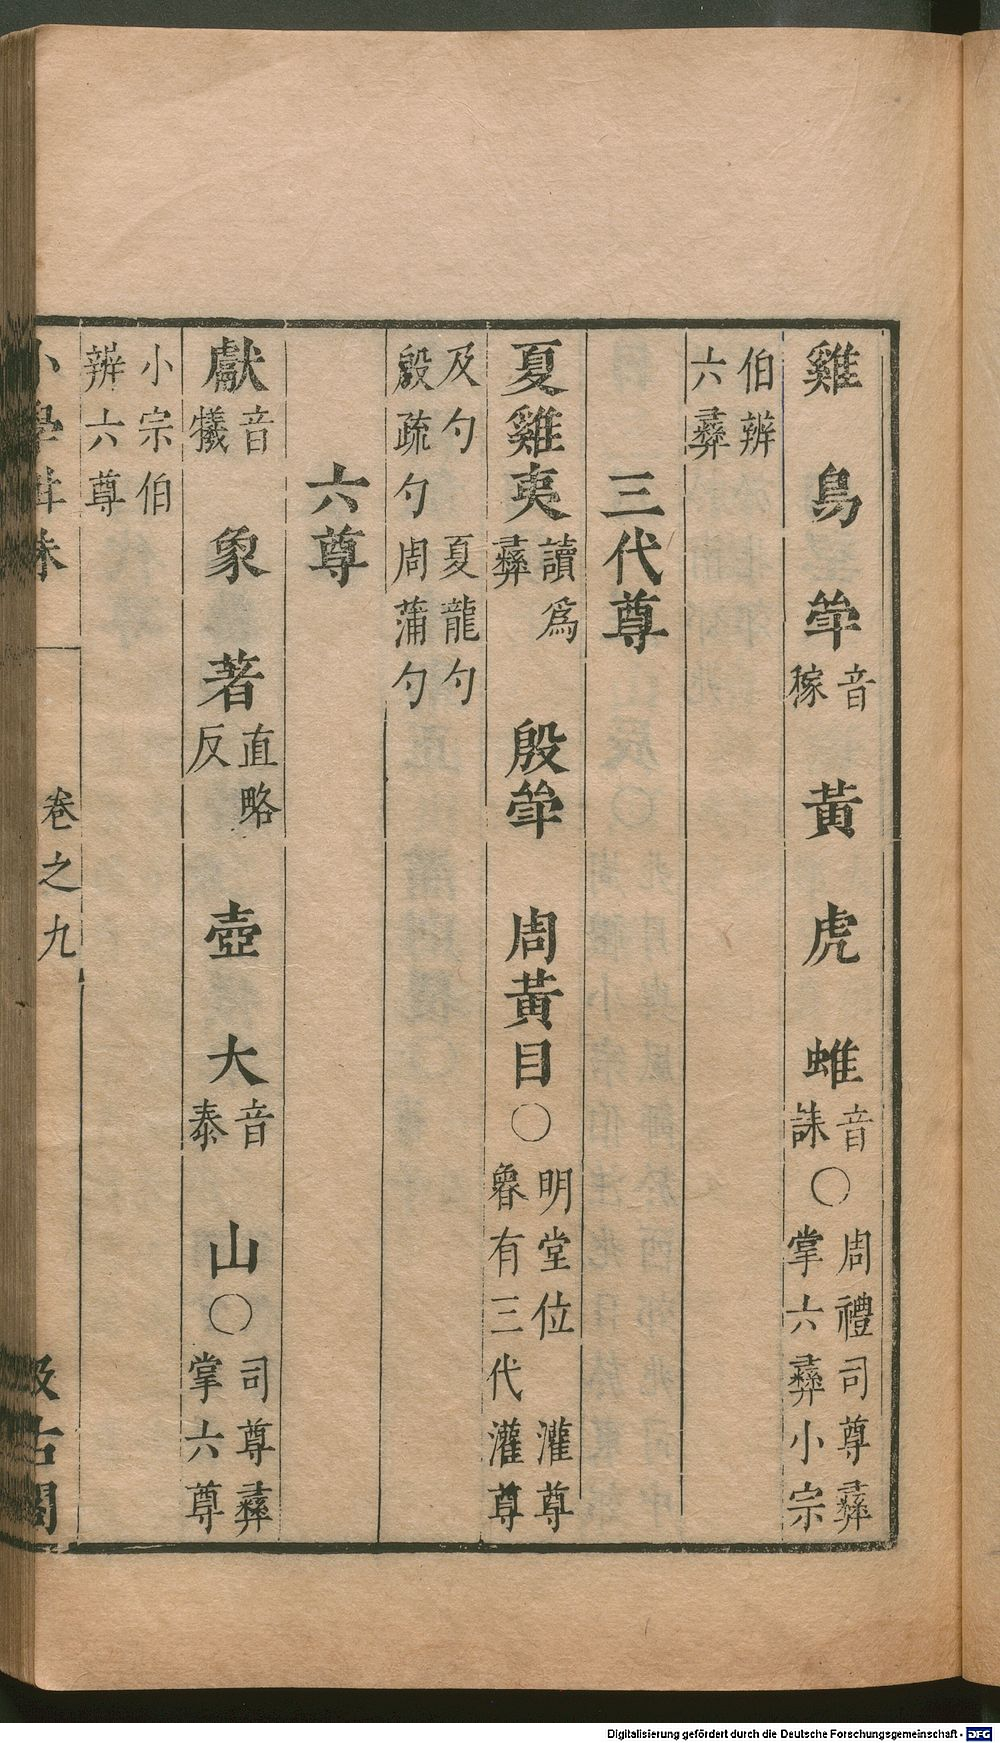 雞 鳥 斝音稼 黃 虎 蜼音誅〇周禮司尊彝掌六彝小宗
伯辨六彝
三代尊
夏雞夷讀爲彝 殷斝 周黃目〇明堂位灌尊魯有三代灌尊
及勺夏龍勺殷疏勺周蒲勺
六尊
獻音犧 象 著直略反 壺 大音泰 山〇司尊彝掌六尊
小宗伯辨六尊
小學紺珠 卷之九 汲古閣
Digitalisierung gefördert durch die Deutsche Forschungsgemeinschaft - DFG